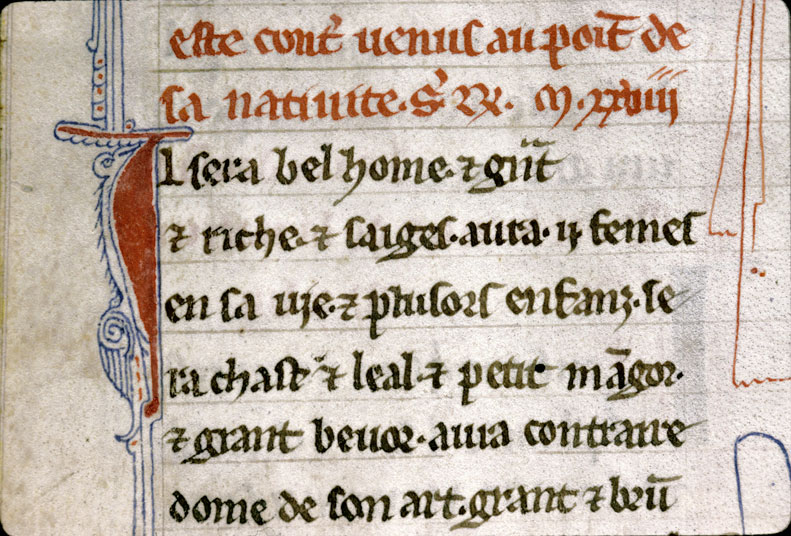 este cont᷑ uenus au poīt de
sa natiuite. S᷑ XX. M. xxiiii
Il sera bel home. ⁊ gͣnt
⁊ riche. ⁊ saiges. aura. ij. femes
en sa uie. ⁊ plusors enfanz. se
ra chaste ⁊ leal. ⁊ petit māgor.
⁊ grant beuor. aura contraire
dome de son art. grant ⁊ brū